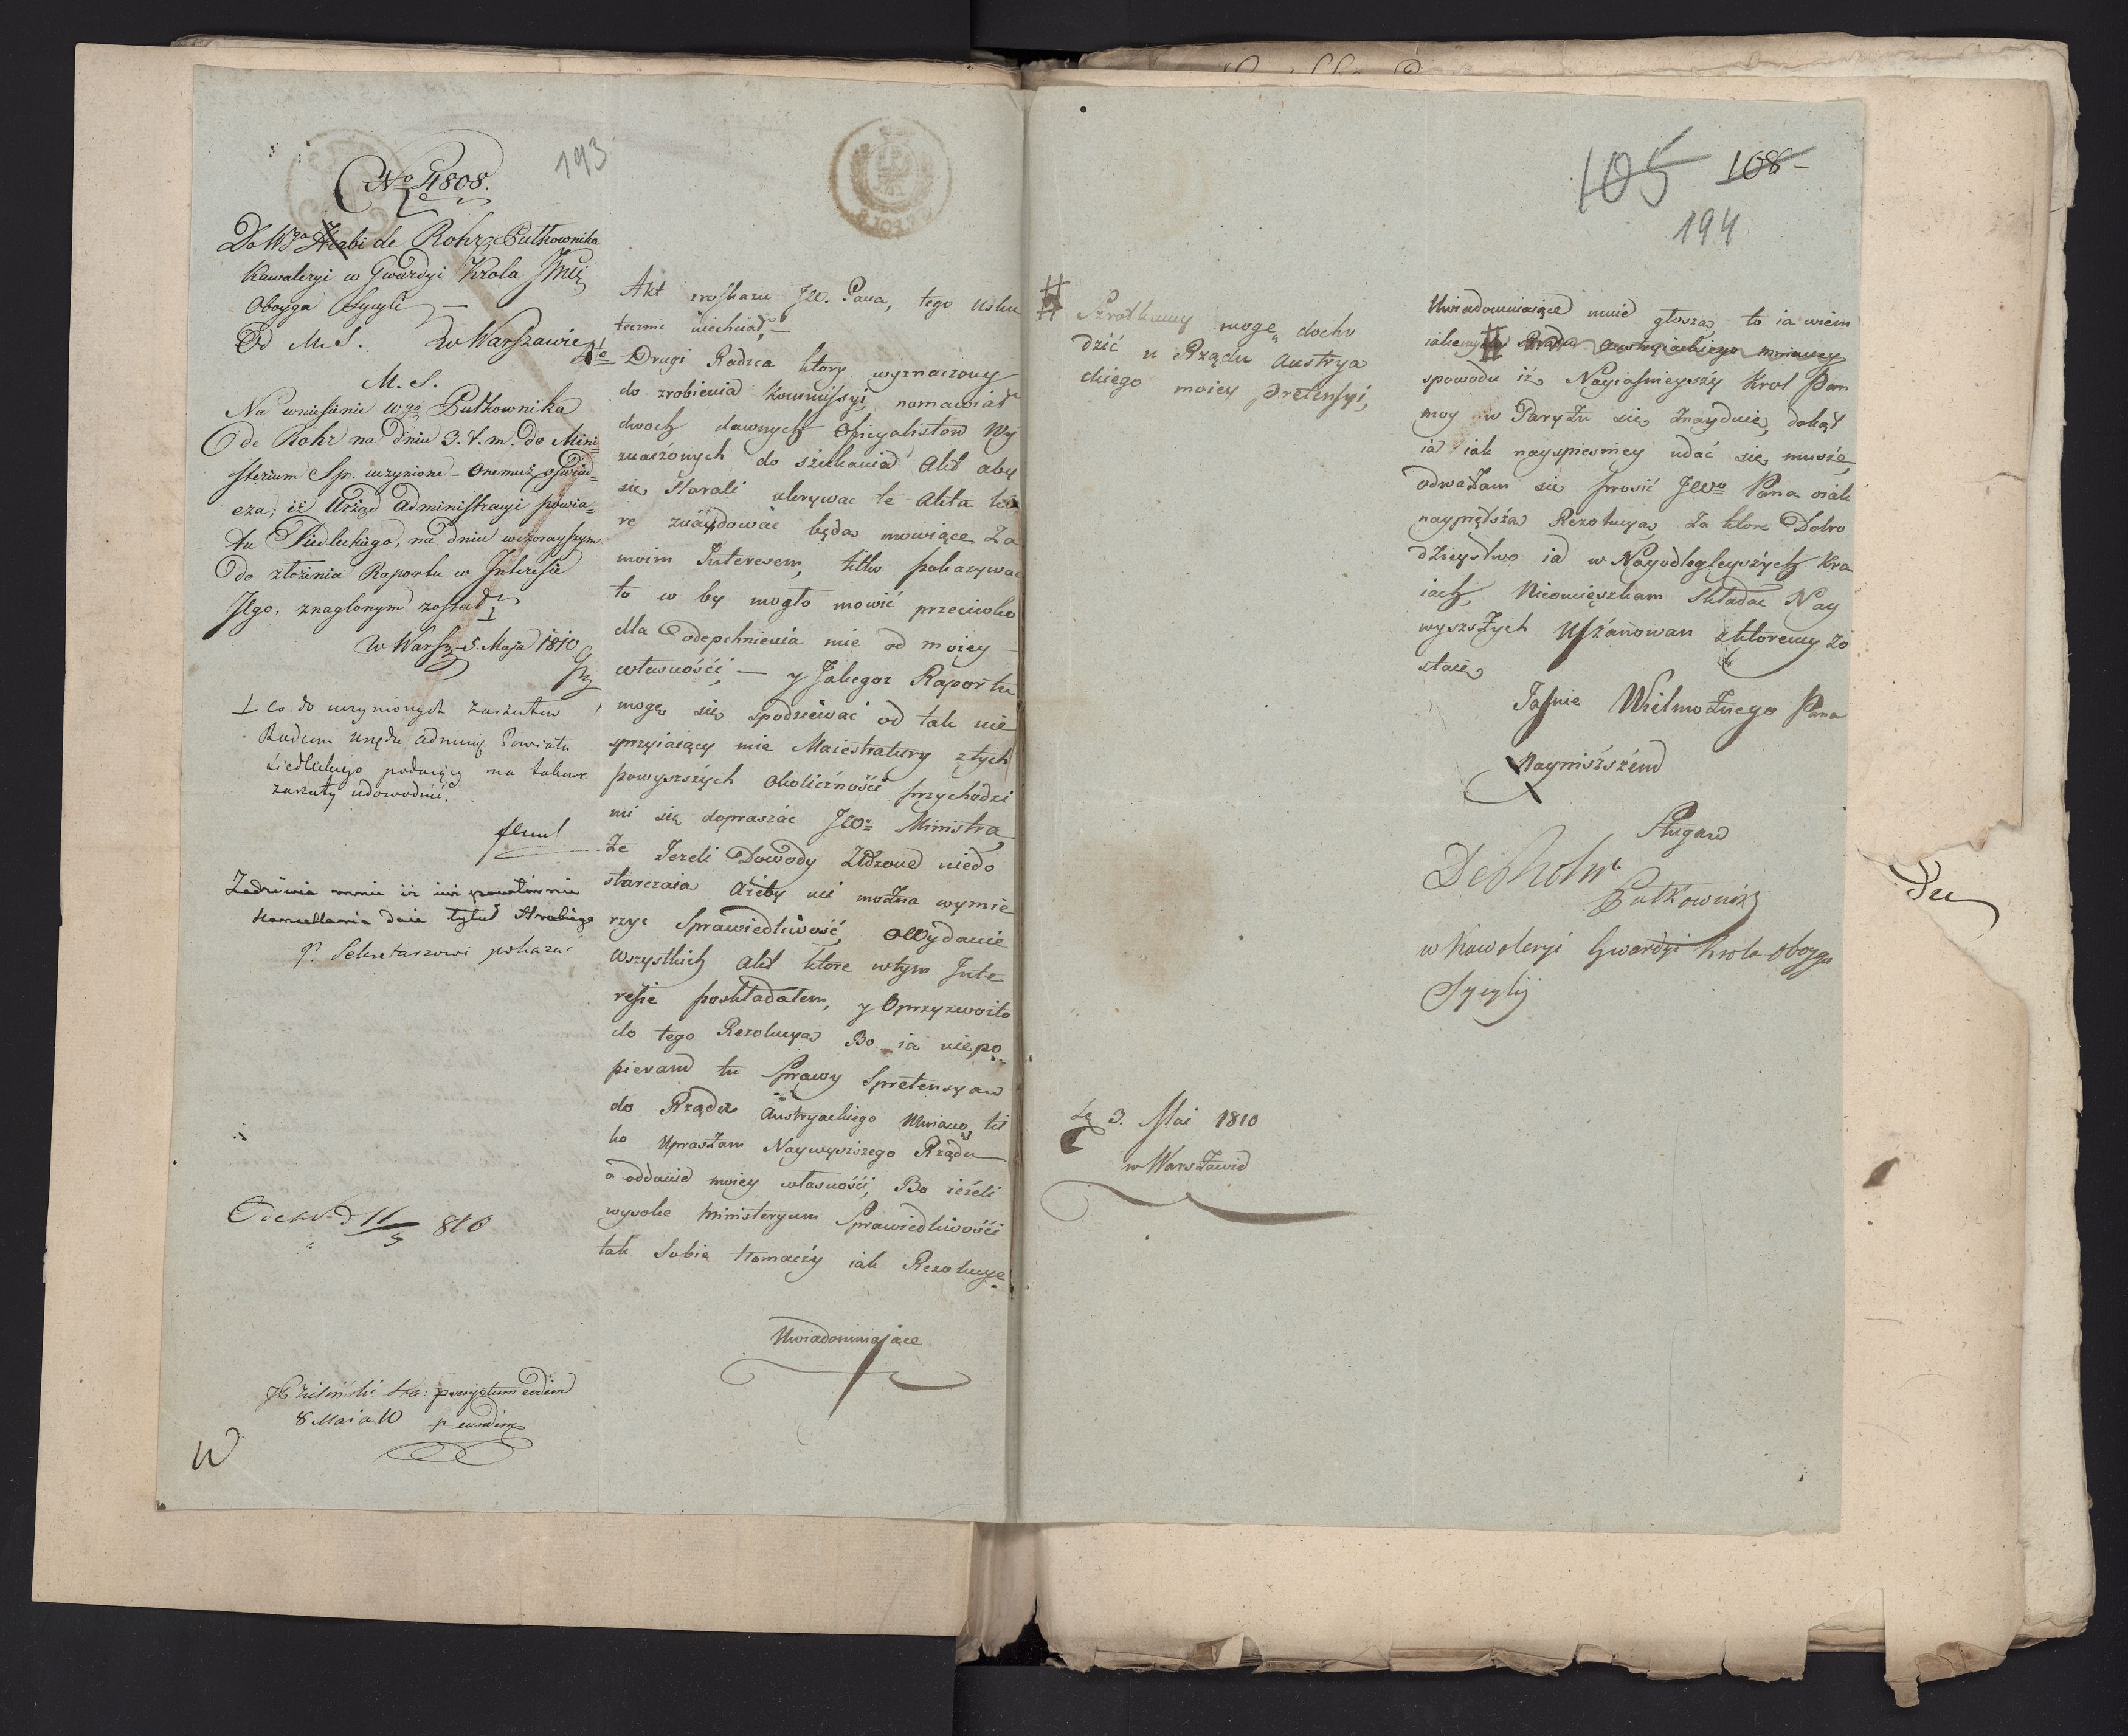 193
No 4808.
Do Wgo Hrabi de Rohr Pułkownika
Kawaleryi w Gwardyi Krola Jmci
Oboyga Sycylii —
Od M. S. w Warszawie
M. S.
Na wniesienie Wgo Pułkownika
de Rohr na dniu 3. t. m. do Mini
sterium Spr. uczynione – onemuż oświad=
cza, iż Urząd Administracyi powia=
tu Siedleckiego, na dniu wczorayszym
do złożenia Raportu w Interesie
Jego, znaglonym został
w Warsz. 5. Maja 1810
⊥ co do uczynionych zarzutów
Radcom Urzędu administ. Powiatu
Siedleckiego podaiący ma takowe
zarzuty udowodnić.
Zadziwia mnie iż mi powtórnie
Kancellaria daie tytuł Hrabiego
P. Sekretarzowi pokazać
11/5 810
8 Maia 10 p eundem
Akt zroskazu JW. Pana, tego usku
tecznic niechciał, —
2do Drugi Radzca ktory wyznaczony
do zrobienia Kommissyi, namawiał
dwoch dawnych Oficyalistow Wy
znaczonych do szukania Akt aby
się starali ukrywac te Akta kto
re znaydować będą mowiące za
moim Interesem, tylko pokazywac
to co by mogło mowić przeciwko
dla odepchnienia mie od moiey —
własności, — y Jakegoz Raportu
mogę się spodziewać od tak nie
sprzyiaiący mie Maiestratury ztych
powyszszych okoliczności przychodzi
mi się dopraszać JWo Ministra,
Że Jezeli Dowody złożone niedo
starczaia Ażeby mi można wymie
rzyc Sprawiedliwość, o Wydanie
wszystkich Akt ktore wtym Inte
resie poskładałem, y Oprzyzwoito
do tego Rezolucya Bo ia niepo
pieram tu Sprawy Spretensyam
do Rządu Austryackiego Mniano, tyl
ko Upraszam Naywyszszego Rządu
o oddanie moiey własności, Bo ieżeli
wysokie Ministeryum Sprawiedliwości
tak Sobie tłomaczy iak Rezolucye
Uwiadomiaiące
105 108
194
docho
dzić u Rządu Austrya
ckiego moiey Pretensyi,
Le 3. Mai 1810
w Warszawie
Uwiadomiaiące mnie głoszą, to ia wiem
Rządu Austryiackiego mnianey
spowodu iż Nayiaśnieyszy Krol Pan
moy w Paryżu się znayduie, dokąt
ia iak nayspiesniey udać się muszę,
odważam się prosić JWo Pana oiak
nayprędsza Rezolucya, za ktore Dobro
dzieystwo ia w Nayodlegleyszych Kra
iach, Nieomieszkam składac Nay
wyszszych Uszanowan zktoremy zo
staie
Jaśnie Wielmożnego Pana
Nayniższem
Sługam
De Rohr
Pułkownik
w Kawaleryi Gwardyi Krola oboyga
Sycylij
Du